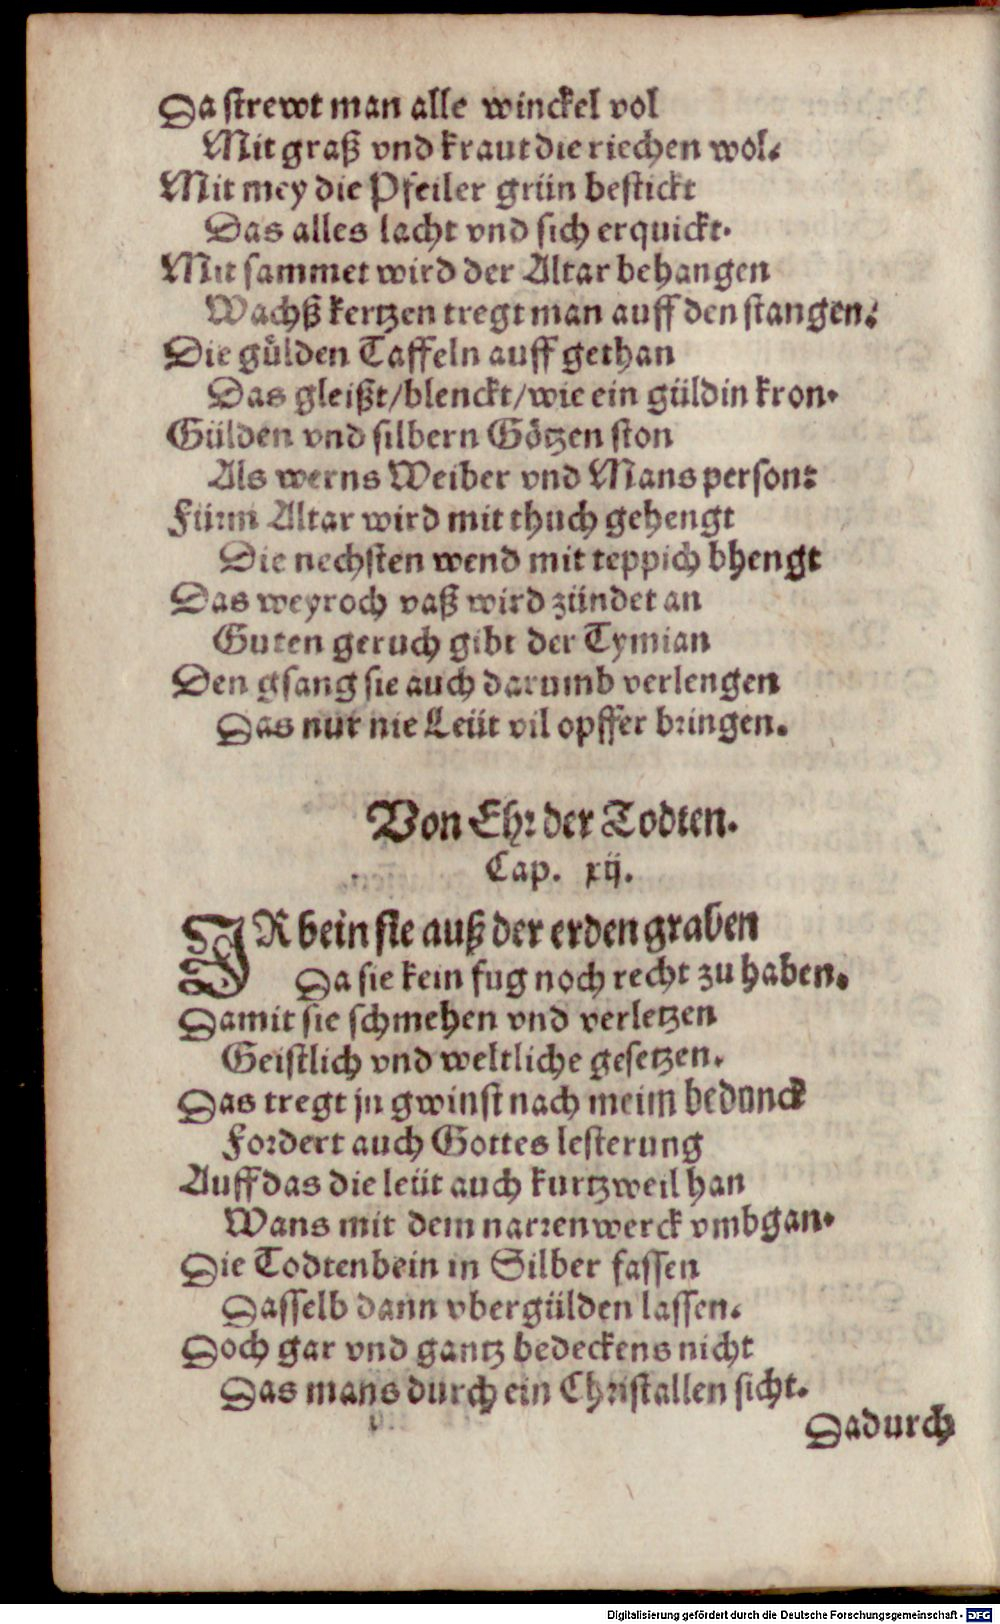 Da strewt man alle winckel vol
Mit graß vnd kraut die riechen wol.
Mit mey die Pfeiler grün bestickt
Das alles lacht vnd sich erquickt.
Mit sammet wird der Altar behangen
Wachß kertzen tregt man auff den stangen.
Die gülden Taffeln auff gethan
Das gleißt/blenckt/wie ein güldin kron.
Gülden vnd silbern Götzen ston
Als werns Weiber vnd Mans person:
Fürm Altar wird mit thuch gehengt
Die nechsten wend mit teppich bhengt
Das weyroch vaß wird zündet an
Guten geruch gibt der Tymian
Den gsang sie auch darumb verlengen
Das nur nie Leüt vil opffer bringen.
Von Ehr der Todten.
Cap. xij.
IR bein sie auß der erden graben
Da sie kein fug noch recht zu haben.
Damit sie schmehen vnd verletzen
Geistlich vnd weltliche gesetzen.
Das tregt jn gwinst nach meim bedunck
Fordert auch Gottes lesterung
Auff das die leüt auch kurtzweil han
Wans mit dem narrenwerck vmbgan.
Die Todtenbein in Silber fassen
Dasselb dann vbergülden lassen.
Doch gar vnd gantz bedeckens nicht
Das mans durch ein Christallen sicht.
Dadurch
Digitalisierung gefördert durch die Deutsche Forschungsgemeinschaft - DFG